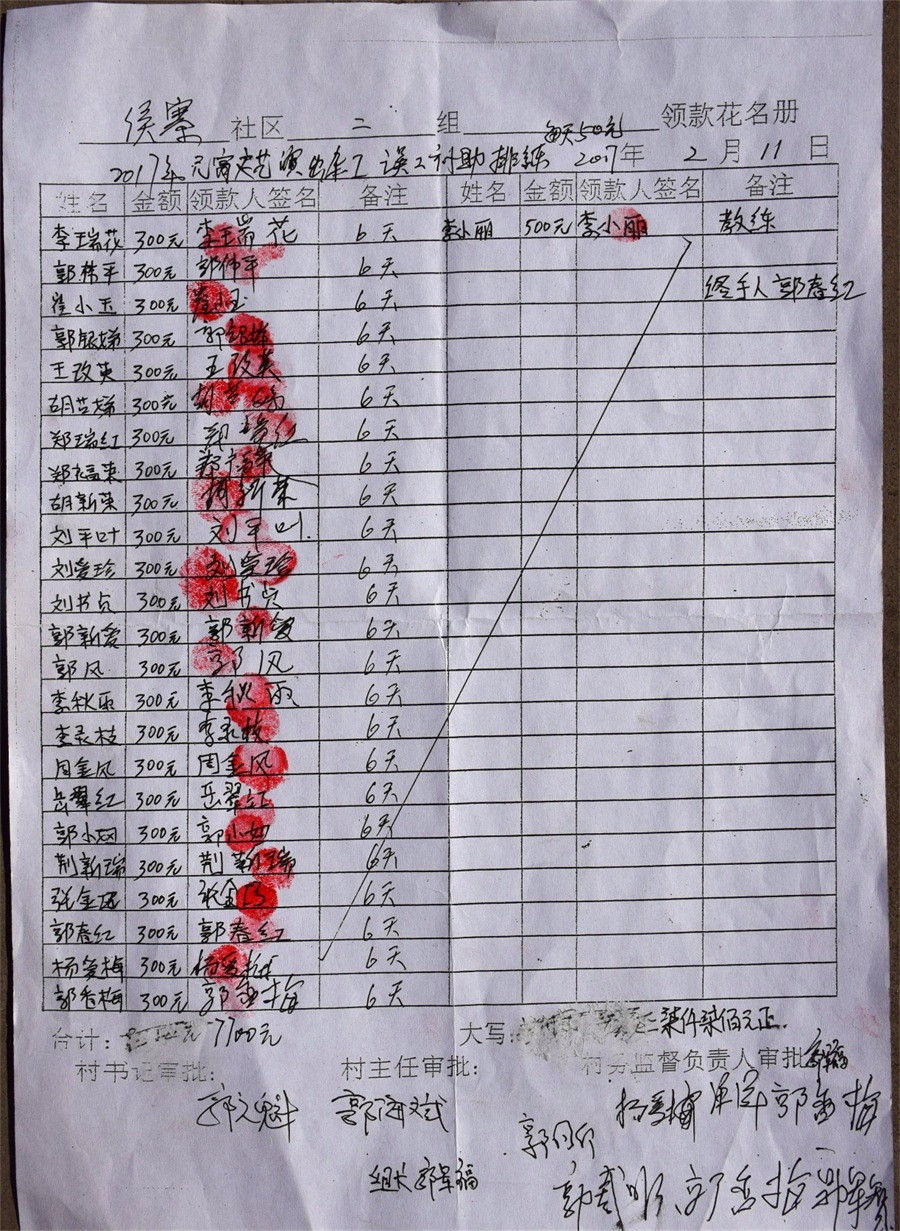 侯寨 社区 二 组 每天50元 领款花名册
2017年元宵文艺演出误工补助排练 2017年 2月11日
姓名 金额 领款人签名 备注 姓名 金额 领款人签名 备注
李瑞花 300元 李瑞花 6天 李小丽 500元 李小丽 教练
郭伟平 300元 郭伟平 6天
崔小玉 300元 崔小玉 6天 经手人 郭春红
郭银娣 300元 郭银娣 6天
王改英 300元 王改英 6天
胡芑娣 300元 6天
郑瑞红 300元 郑瑞红 6天
郑福荣 300元 郑福荣 6天
胡新荣 300元 胡新荣 6天
刘平叶 300元 刘平叶 6天
刘爱珍 300元 刘爱珍 6天
刘书贞 300元 刘书贞 6天
郭新爱 300元 郭新爱 6天
郭风 300元 郭风 6天
李秋雨 300元 李秋雨 6天
300元 6天
周金风 300元 周金风 6天
岳翠红 300元 岳翠红 6天
郭小 300元 郭小 6天
荆新瑞 300元 荆新瑞 6天
张金巧 300元 张金巧 6天
郭春红 300元 郭春红 6天
杨爱梅 300元 杨爱梅 6天
郭香梅 300元 郭香梅 6天
合计: 7700元 大写: 柒仟柒佰元正
村书记审批: 村主任审批: 村务监督负责人审批
郭文魁 郭海斌 杨爱梅 郭香梅
组长 郭军福 郭香梅